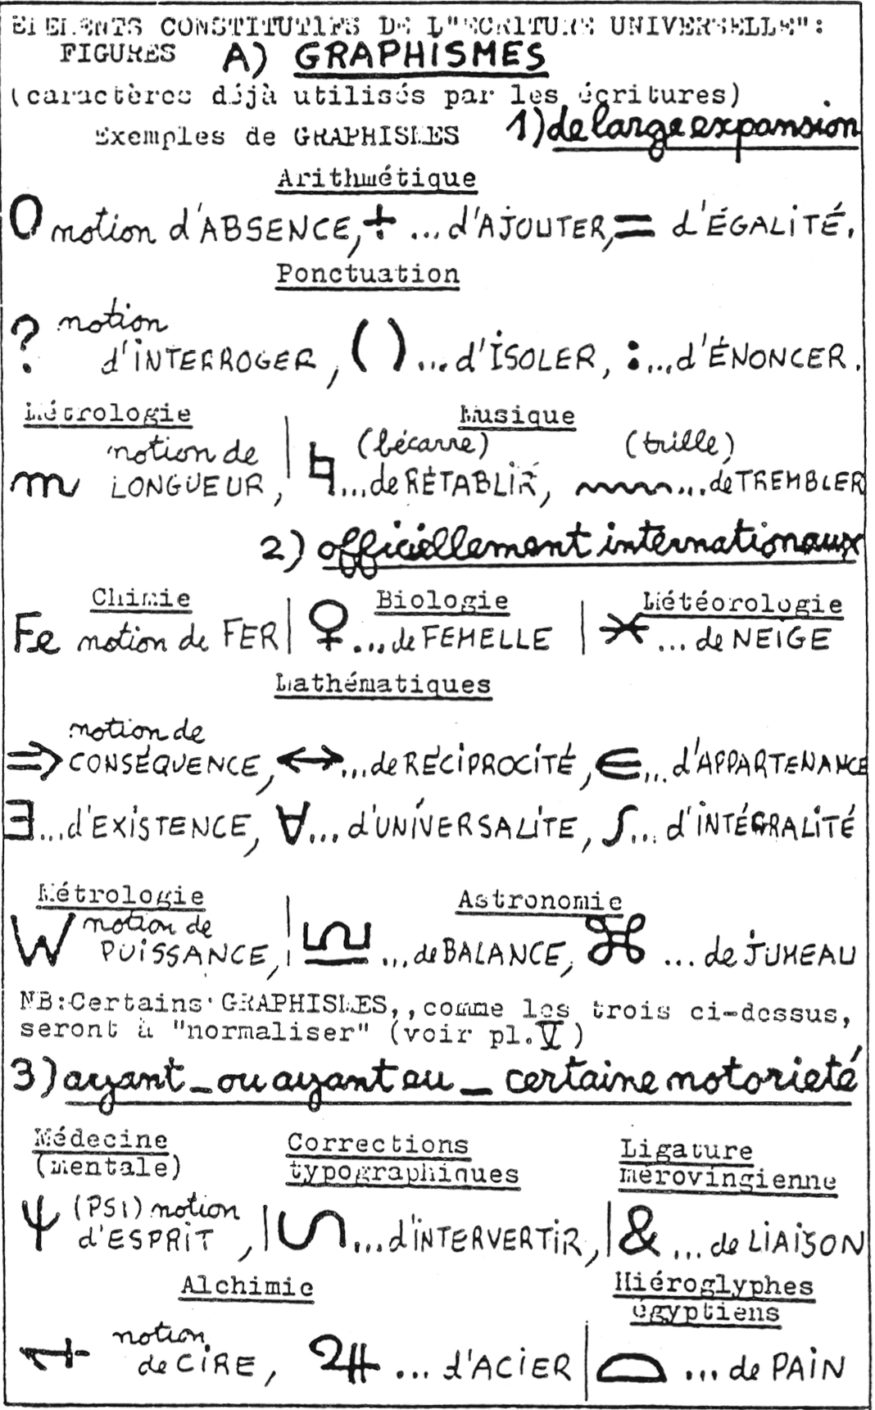 ELEMENTS CONSTITUTIFS DE L"ECRITURE UNIVERSELLE":
FIGURES A) GRAPHISMES
(caractères déjà utilisés par les écritures)
Exemples de GRAPHISMES 1) de large expansion
Arithmétique
0 notion d'ABSENCE, + ... d'AJOUTER, = d'ÉGALITÉ.
Ponctuation
? notion
d'INTERROGER, ( ) ... d'ISOLER, : ... d'ÉNONCER.
Métrologie | Musique
notion de (bécarre) (trille)
m LONGUEUR, ♮ ... de RÉTABLIR, ... de TREMBLER
2) officiellement internationaux
Chimie | Biologie | Météorologie
Fe notion de FER | ♀ ... de FEMELLE | ... de NEIGE
Mathématiques
notion de
⇒ CONSÉQUENCE, ↔ ... de RÉCIPROCITÉ, ∈ ... d'APPARTENANCE
∃ ... d'EXISTENCE, ∀ ... d'UNIVERSALITE, ∫ ... d'INTÉGRALITÉ
Métrologie | Astronomie
W notion de
PUISSANCE, ... de BALANCE, ⌘ ... de JUMEAU
NB:Certains GRAPHISMES,,comme les trois ci-dessus,
seront à "normaliser" (voir pl.V)
3) ayant _ ou ayant eu _ certaine notorieté
Médecine
(mentale)
Corrections
typographiques
Ligature
mérovingienne
Ψ (PSI) notion
d'ESPRIT, | ... d'INTERVERTIR, | & ... de LIAISON
Alchimie
Hiéroglyphes
égyptiens
notion
de CIRE, ... d'ACIER | ... de PAIN